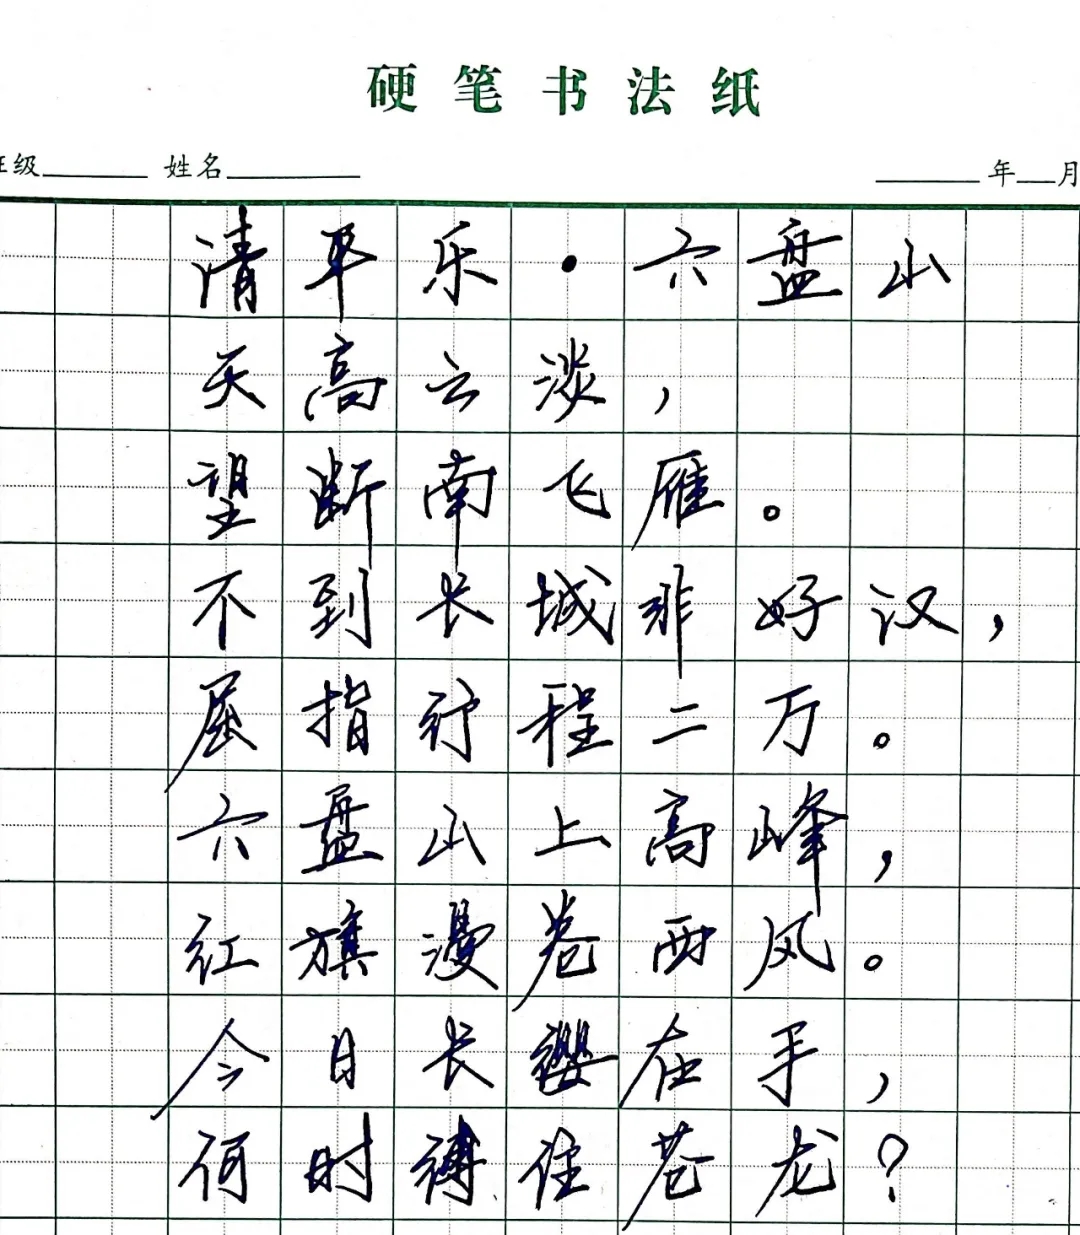 硬笔书法纸
班级 姓名 年 月
清平乐·六盘山
天高云淡，
望断南飞雁。
不到长城非好汉，
屈指行程二万。
六盘山上高峰，
红旗漫卷西风。
今日长缨在手，
何时缚住苍龙？